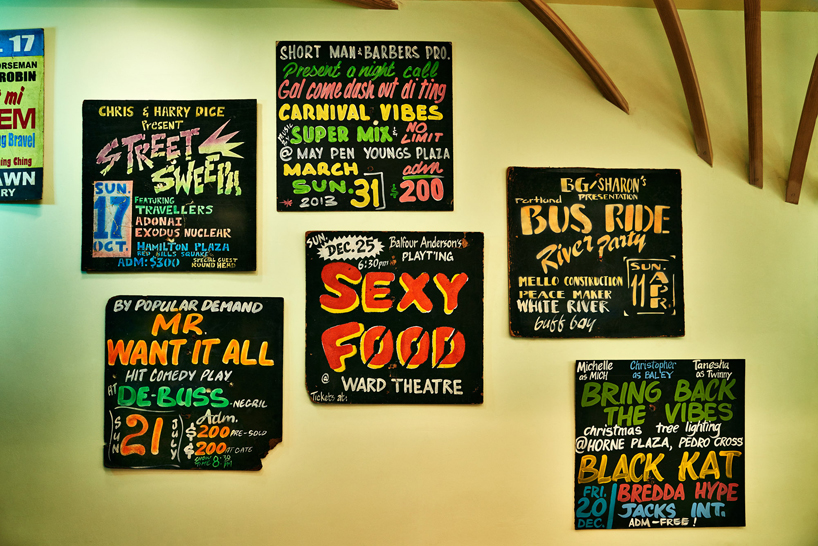 . 17
ORSEMAN
ROBIN
t mi
EM
g Bravel
ing Ching
AWN
RY
CHRIS & HARRY DICE
Present
STREET
SWEEPA
SUN.
17
OCT.
FEATURING
TRAVELLERS
ADONAI
EXODUS NUCLEAR
HAMILTON PLAZA
RED HILLS SQUARE
ADM: $300
SPECIAL GUEST
ROUND HEAD
SHORT MAN & BARBERS PRO.
Present a night call
Gal come dash out di ting
CARNIVAL VIBES
MUSIC BY
SUPER MIX &
NO
LIMIT
@ MAY PEN YOUNGS PLAZA
MARCH
SUN. 31
2013
adm
$200
BY POPULAR DEMAND
MR.
WANT IT ALL
HIT COMEDY PLAY
AT DE-BUSS. NEGRIL
SUN 21 JULY
Adm.
$200 PRE-SOLD
$200 AT GATE
SHOW TIME 8:30 PM
SUN. DEC. 25
6:30pm
Balfour Anderson's
PLAYT'ING
SEXY
FOOD
@ WARD THEATRE
Tickets at:
BG/SHARON'S
PRESENTATION
Portland
BUS RIDE
River Party
MELLO CONSTRUCTION
PEACE MAKER
WHITE RIVER
buff bay
SUN.
11 APR.
Michelle
as MICH
Christopher
as BALEY
Tanesha
as Twinny
BRING BACK
THE VIBES
christmas tree lighting
@HORNE PLAZA, PEDRO CROSS
BLACK KAT
FRI.
20
DEC.
BREDDA HYPE
JACKS INT.
ADM-FREE!